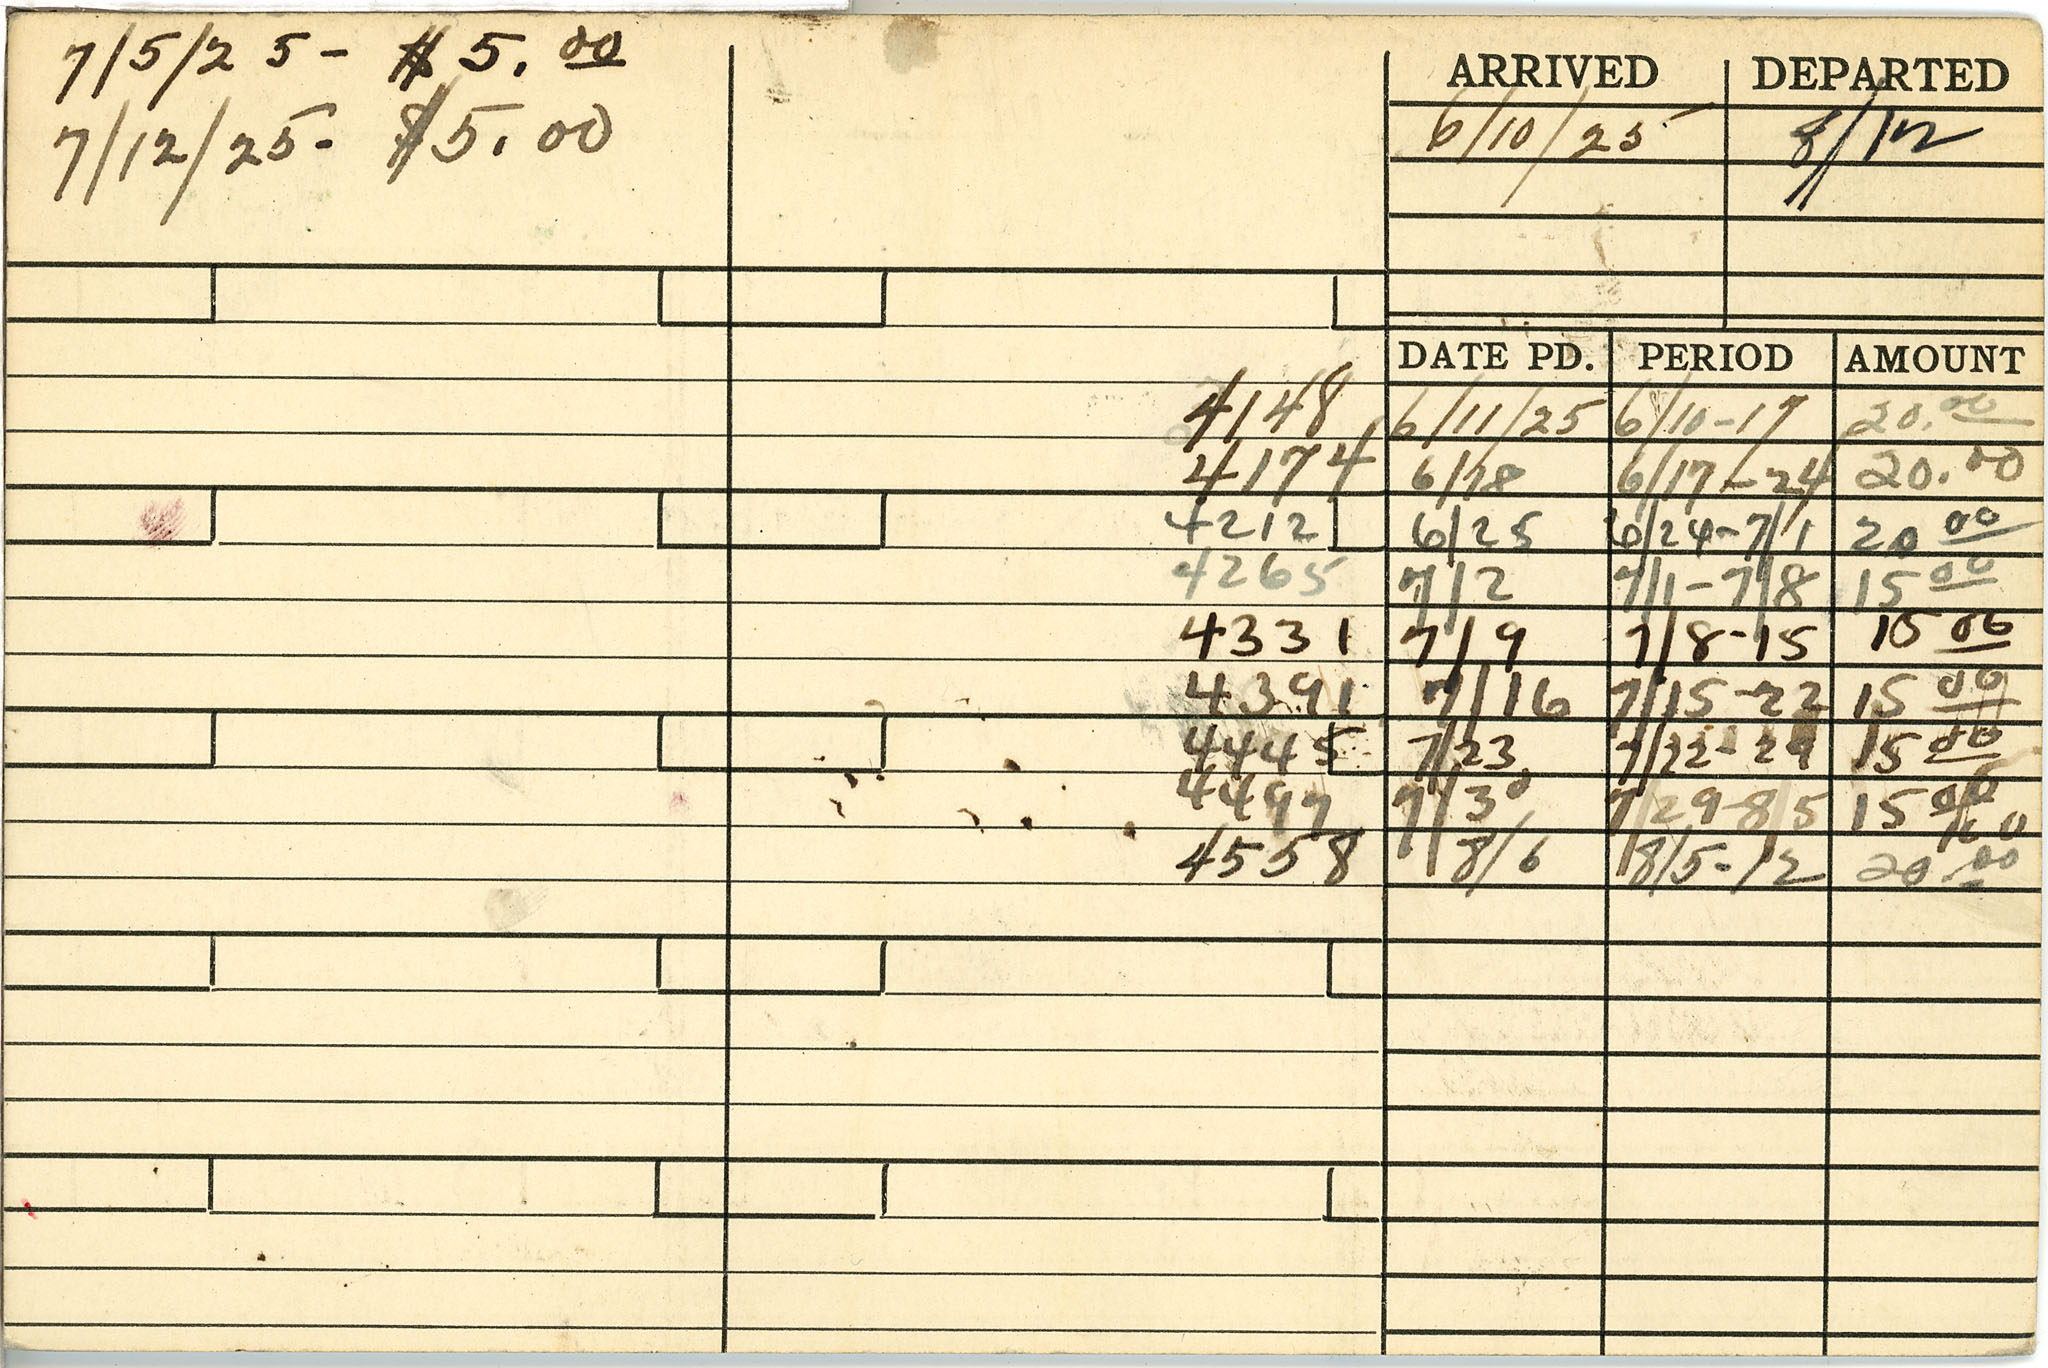 7/5/25- $5.00
7/12/25- $5.00
ARRIVED DEPARTED
6/10/25 8/12
DATE PD. PERIOD AMOUNT
4148 6/11/25 6/10-17 20.00
4174 6/18 6/17-24 20.00
4212 6/25 6/24-7/1 20.00
4265 7/2 7/1-7/8 15 00
4331 7/9 7/8-15 15 00
4391 7/16 7/15-22 15 00
4445 7/23 7/22-29 15 00
4497 7/30 7/29-8/5 15 00
4558 8/6 8/5-12 20.00